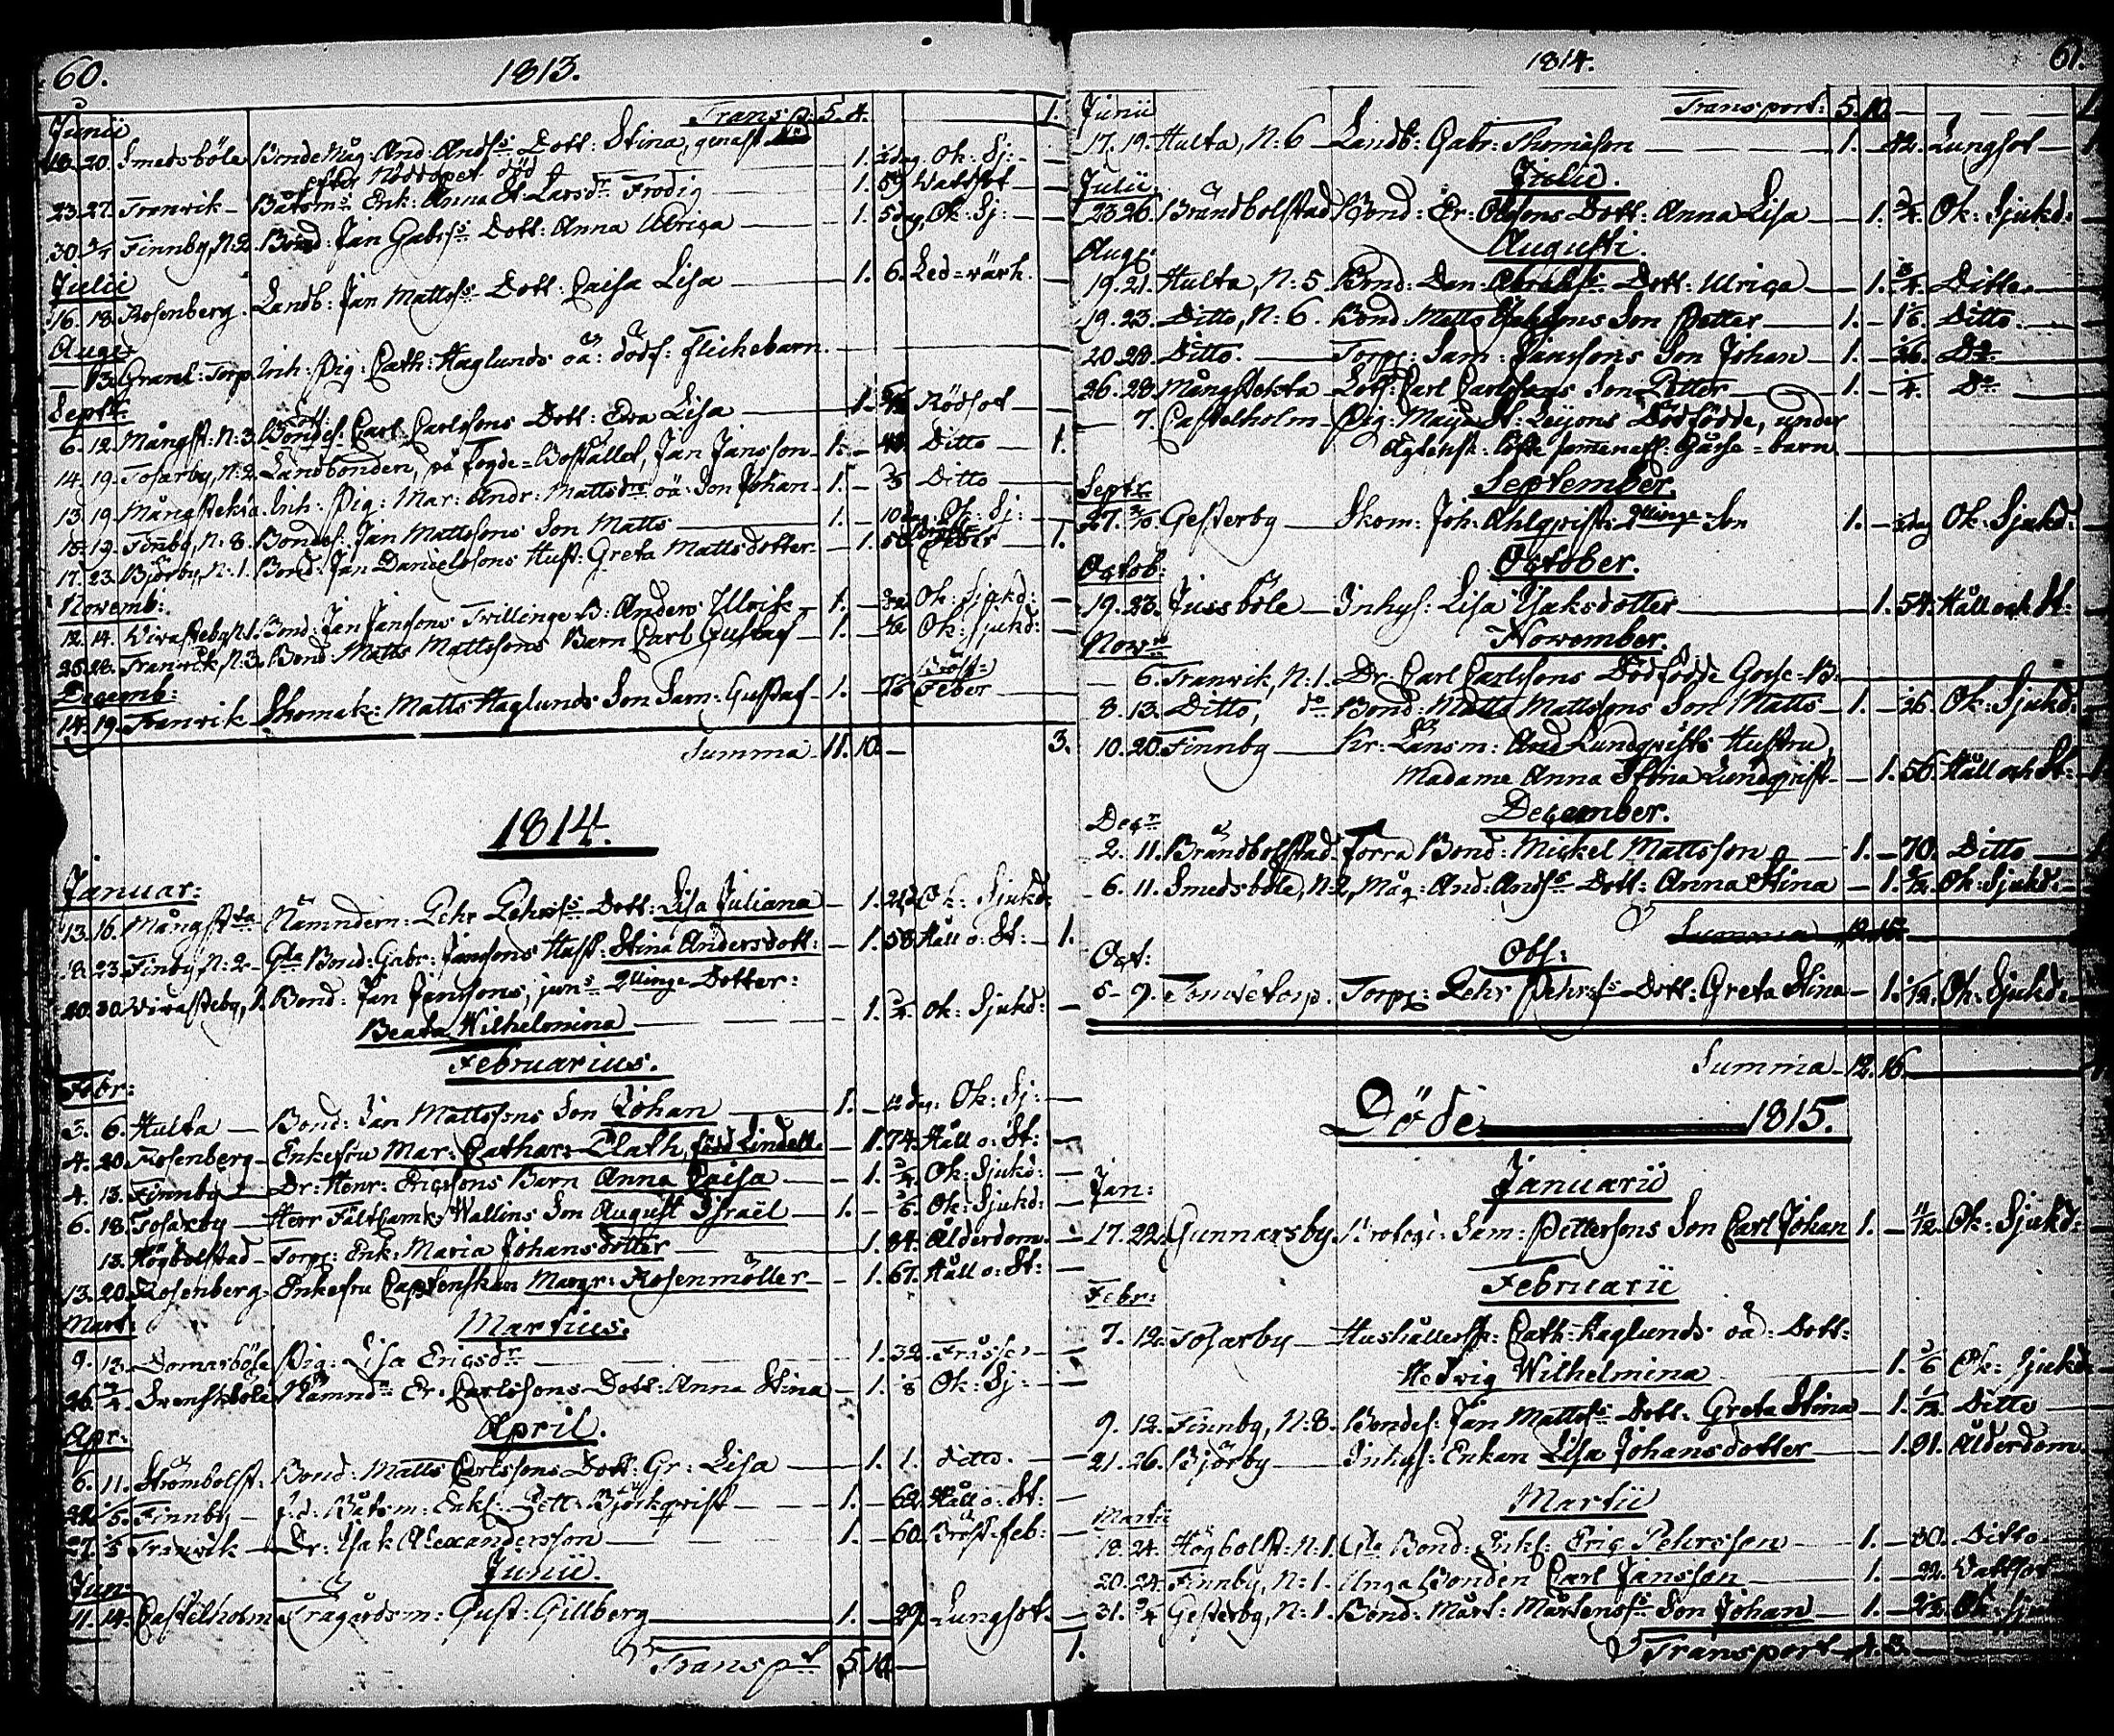 60.
1813.
Transp: 5. 4. 1.
Junii
18. 20. Smedsböle Bonde Måg And: Ands: s Dott: Stina, genast
efter Nöddopet död 1. Ok: Sj: —
23. 27. Tranvik — Båtsm: s Enk: Anna St. Larsdr Frodig — 1. 59 Wattsot —
30. Finnby, N:2. Bond: Jan Gabrs: s Dott: Anna Ulrica — 1. 5 dag. Ok: Sj: —
Julii
16. 18. Rosenberg. Landb: Jan Mattss: s Dott: Caisa Lisa — 1. 6. Led=värk.
Aug:
— 13. Granl: Torp Inh: Pig: Cath: Haglunds oä: dödf: flickebarn. —
Septr.
6. 12. Mångst: N:3. Bondes: Carl Carlssons Dott: Eva Lisa — 1. Rödsot —
14. 19. Tosarby, N:2. Landbonden, på Fogde=Bostället, Jan Jansson — 1. — Ditto — 1.
13. 19. Mångstekta. Inh: Pig: Mar: Andr: Mattsdrs oä: Son Johan — 1. — Ditto —
18. 19. Finnby, N: 8. Bondes: Jan Mattssons Son Matts — 1. — 10 Ok: Sj: —
17. 23. Björby, N: 1. Bond: Jan Danielssons Hust: Greta Mattsdotter — 1. 50. Feber — 1.
Novemb:
12. 14. Wivasteby N:1. Bond: Jan Janssons Trillinge B: Anders Ulrik — 1. — Ok: Sjukd: —
25. 28. Tranvik, N:3. Bond: Matts Mattssons Barn Carl Gustaf — 1. — Ok: Sjukd: —
Decemb:
14. 19. Tranvik Skomak: Matts Haglunds Son Sam: Gustaf — 1. — Bröst= Feber —
Summa 11. 10. — 3.
1814.
Januar:
13. 16. Mångstta Nämndem: Pehr Pehrs: s Dott: Lisa Juliana — 1. Ok: Sjukd:
18. 23. Finby, N: 2. Gla Bond: Gabr: Janssons Hust: Stina Andersdott: — 1. 58 Håll o: St: — 1.
20. 30. Wivasteby, 1. Bond: Jan Janssons, jun: s 2llinge Dotter:
Beata Wilhelmina — 1. Ok: Sjukd: —
Februarius.
Febr:
3. 6. Hulta — Bond: Jan Mattssons Son Johan — 1. — 12 dag: Ok: Sj: —
4. 20. Rosenberg — Enkefru Mar: Cathar: Clath, född Lindell — 1. 74. Håll o: St: —
4. 13. Finnby — Dr: Henr: Ericssons Barn Anna Caisa — 1. Ok: Sjukd: —
6. 18. Tosarby — Herr Fältkamr: Wallins Son August Israël — 1. — Ok: Sjukd: —
13. Högbolstad — Torp: Enk: Maria Johansdotter — 1. 84. Ålderdom. —
13. 20. Rosenberg — Enkefru Captenskan Margr: Rosenmöller — 1. 67. Håll o: St: —
Mart.
Martius.
9. 13. Domarböle Pig: Lisa Ericsdr — 1. 32. Frossen —
26. Svensböle, Nämndn Er: Carlssons Dott: Anna Stina — 1. Ok: Sj: —
April.
Apr:
6. 11. Strömbolst: Bond: Matts Carlssons Dott: Gr: Lisa — 1. 1. ditto. —
22. Finnby — f.d: Båtsm: Enkl: Pett: Björkqvist — 1. — 62. Håll o: St: —
27. Tranvik — Dr: Isak Alexandersson — 1. — 60. Bröst=feb: —
Junii.
Jun:
11. 14. Castelholm Trägårdsm: Gust: Gillberg — 1. — 29. Lungsot. —
Transpt 5. 10. — 1.
1814.
61.
Junii
Transport: 5. 10. — 1
17. 19. Hulta, N: 6 Landb: Gabr: Thomasson — 1. — 42. Lungsot — 1
Julii.
Julii
23. 26. Brändbolstad Bond: Er: Olssons Dott: Anna Lisa — 1. Ok: Sjukd: —
Augusti.
Aug:
19. 21. Hulta, N: 5 Bond: Dan: Abrahs: Dott: Ulrica — 1. Ditto. —
19. 23. Ditto, N: 6. Bond Matts Son Petter — 1. — Ditto. —
20. 22. Ditto. — Torp: Sam: Janssons Son Johan — 1. — 26. Do
26. 28. Mångstekta Lots: Carl Carlssons Son Petter — 1. — Do
— 7. Castelholm Pig: Maja St: Leijons Dödfödde, under
Ägtensk: löfte Gosse=barn —
September.
Septr.
27. Gesterby — Skom: Joh: Ahlqvists 2llinge Son 1. — dag Ok: Sjukd: —
October.
Octob:
19. 23. Jussböle — Inhys: Lisa Isaksdotter — 1. 54. Håll och St: —
November.
Novr
— 6. Tranvik, N: 1. Dr: Carl Carlssons Dödfödde Gosse=B. —
8. 13. Ditto, do Bond: Matts Mattssons Son Matts — 1. — 26. Ok: Sjukd: —
10. 20. Finnby — Kr: Länsm: And Lundqvists Hustru
Madame Anna Stina Lundqvist — 1. 56. Håll och St: 1
December.
Decr
2. 11. Brändbolstad. Förra Bond: Mickel Mattsson — 1. — 70. Ditto — 1
6. 11. Smedsböle, N:2, Måg: And: Ands: s Dott: Anna Stina — 1. Ok: Sjukd: —
Summa 12. 15.
Obs:
Oct:
5. 9. Torp: Pehr Pehrs: s Dott: Greta Stina — 1. Ok: Sjukd: —
Summa 12. 16.
Döde 1815.
Januarii
Jan:
17. 22. Gunnarsby. Sam: Petterssons Son Carl Johan 1. — Ok: Sjukd: —
Februarii
Febr:
7. 12. Tosarby — Cath: Haglunds oä: Dott:
Hedvig Wilhelmina — 1. Ok: Sjukd: —
9. 12. Finnby, N: 8. Bondes: Jan Mattss: s Dott: Greta Stina — 1. Ditto —
21. 26. Björby — Inhys: Enkan Lisa Johansdotter — 1. 91. Ålderdom —
Martii
Martii
18. 24. Högbolst: N: 1. Gla Bond: Enkl: Eric Pehrsson — 1. — 80. Ditto
20. 24. Finnby, N: 1. Unga Bonden Carl Jansson — 1. — 22. Wattsot
31. Gesterby, N: 1. Bond: Mårt: Mårtenss: Son Johan — 1. — Ok:
Transport 4. 3. —